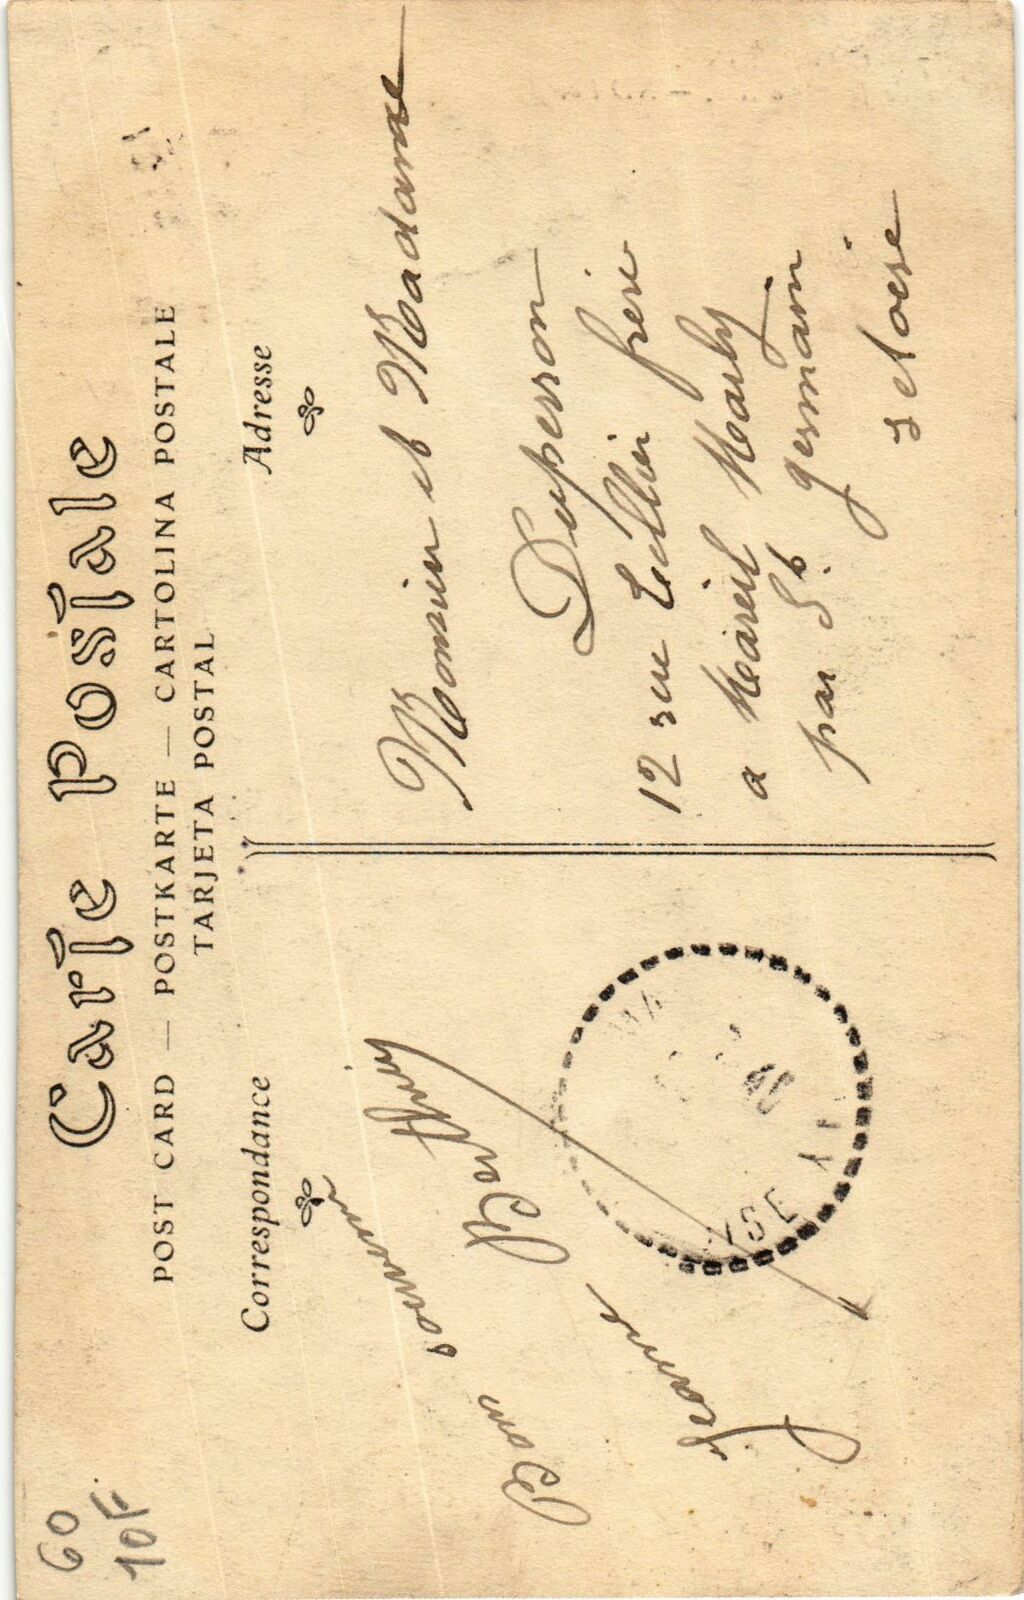 60
10F
Carte Postale
POST CARD — POSTKARTE — CARTOLINA POSTALE
TARJETA POSTAL
Correspondance
Bon souvenir
Jeanne Berthier
Adresse
Monsieur et Madame
Duperron
12 rue Tellier frere
a Mareil Marly
par St germain
s et oise